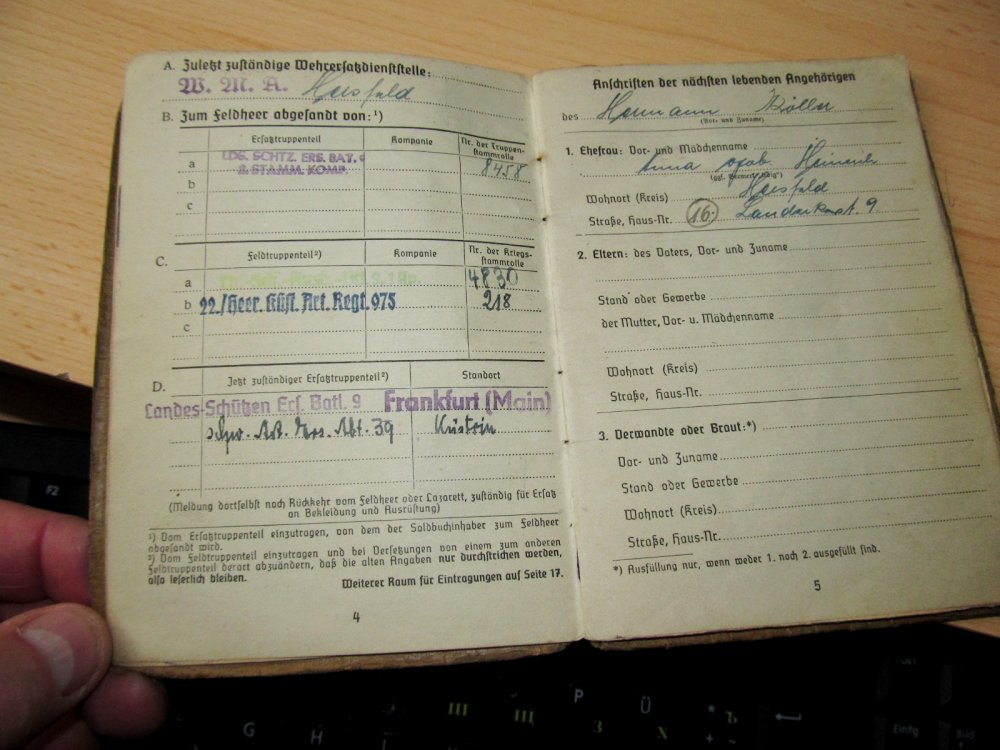 A. Zuletzt zuständige Wehrersatzdienststelle:
W. M. A. Hersfeld
B. Zum Feldheer abgesandt von:¹)
Ersatztruppenteil Kompanie Nr. der Truppenstammrolle
a LDS. SCHTZ. ERS. BAT. 9 8458
2. STAMM. KOMP.
b
c
C. Feldtruppenteil²) Kompanie Nr. der Kriegsstammrolle
a 4830
b 22./Heer. Küst. Art. Regt. 975 218
c
D. Jetzt zuständiger Ersatztruppenteil²) Standort
Landes-Schützen Ers. Batl. 9 Frankfurt (Main)
schw. Art. Ers. Abt. 39 Küstrin
(Meldung dortselbst nach Rückkehr vom Feldheer oder Lazarett, zuständig für Ersatz
an Bekleidung und Ausrüstung)
¹) Vom Ersatztruppenteil einzutragen, von dem der Soldbuchinhaber zum Feldheer
abgesandt wird.
²) Vom Feldtruppenteil einzutragen und bei Versetzungen von einem zum anderen
Feldtruppenteil derart abzuändern, daß die alten Angaben nur durchstrichen werden,
also leserlich bleiben.
Weiterer Raum für Eintragungen auf Seite 17.
4
Anschriften der nächsten lebenden Angehörigen
des Hermann Köller
(Vor- und Zuname)
1. Ehefrau: Vor- und Mädchenname
Anna geb. Heinrich
Wohnort (Kreis) Hersfeld
Straße, Haus-Nr. 16 9
2. Eltern: des Vaters, Vor- und Zuname
Stand oder Gewerbe
der Mutter, Vor- u. Mädchenname
Wohnort (Kreis)
Straße, Haus-Nr.
3. Verwandte oder Braut:*)
Vor- und Zuname
Stand oder Gewerbe
Wohnort (Kreis)
Straße, Haus-Nr.
*) Ausfüllung nur, wenn weder 1. noch 2. ausgefüllt sind.
5
F2
G
H
Ш
Щ
P
З
Ü
Х
*
Ъ
+
~
Einfg